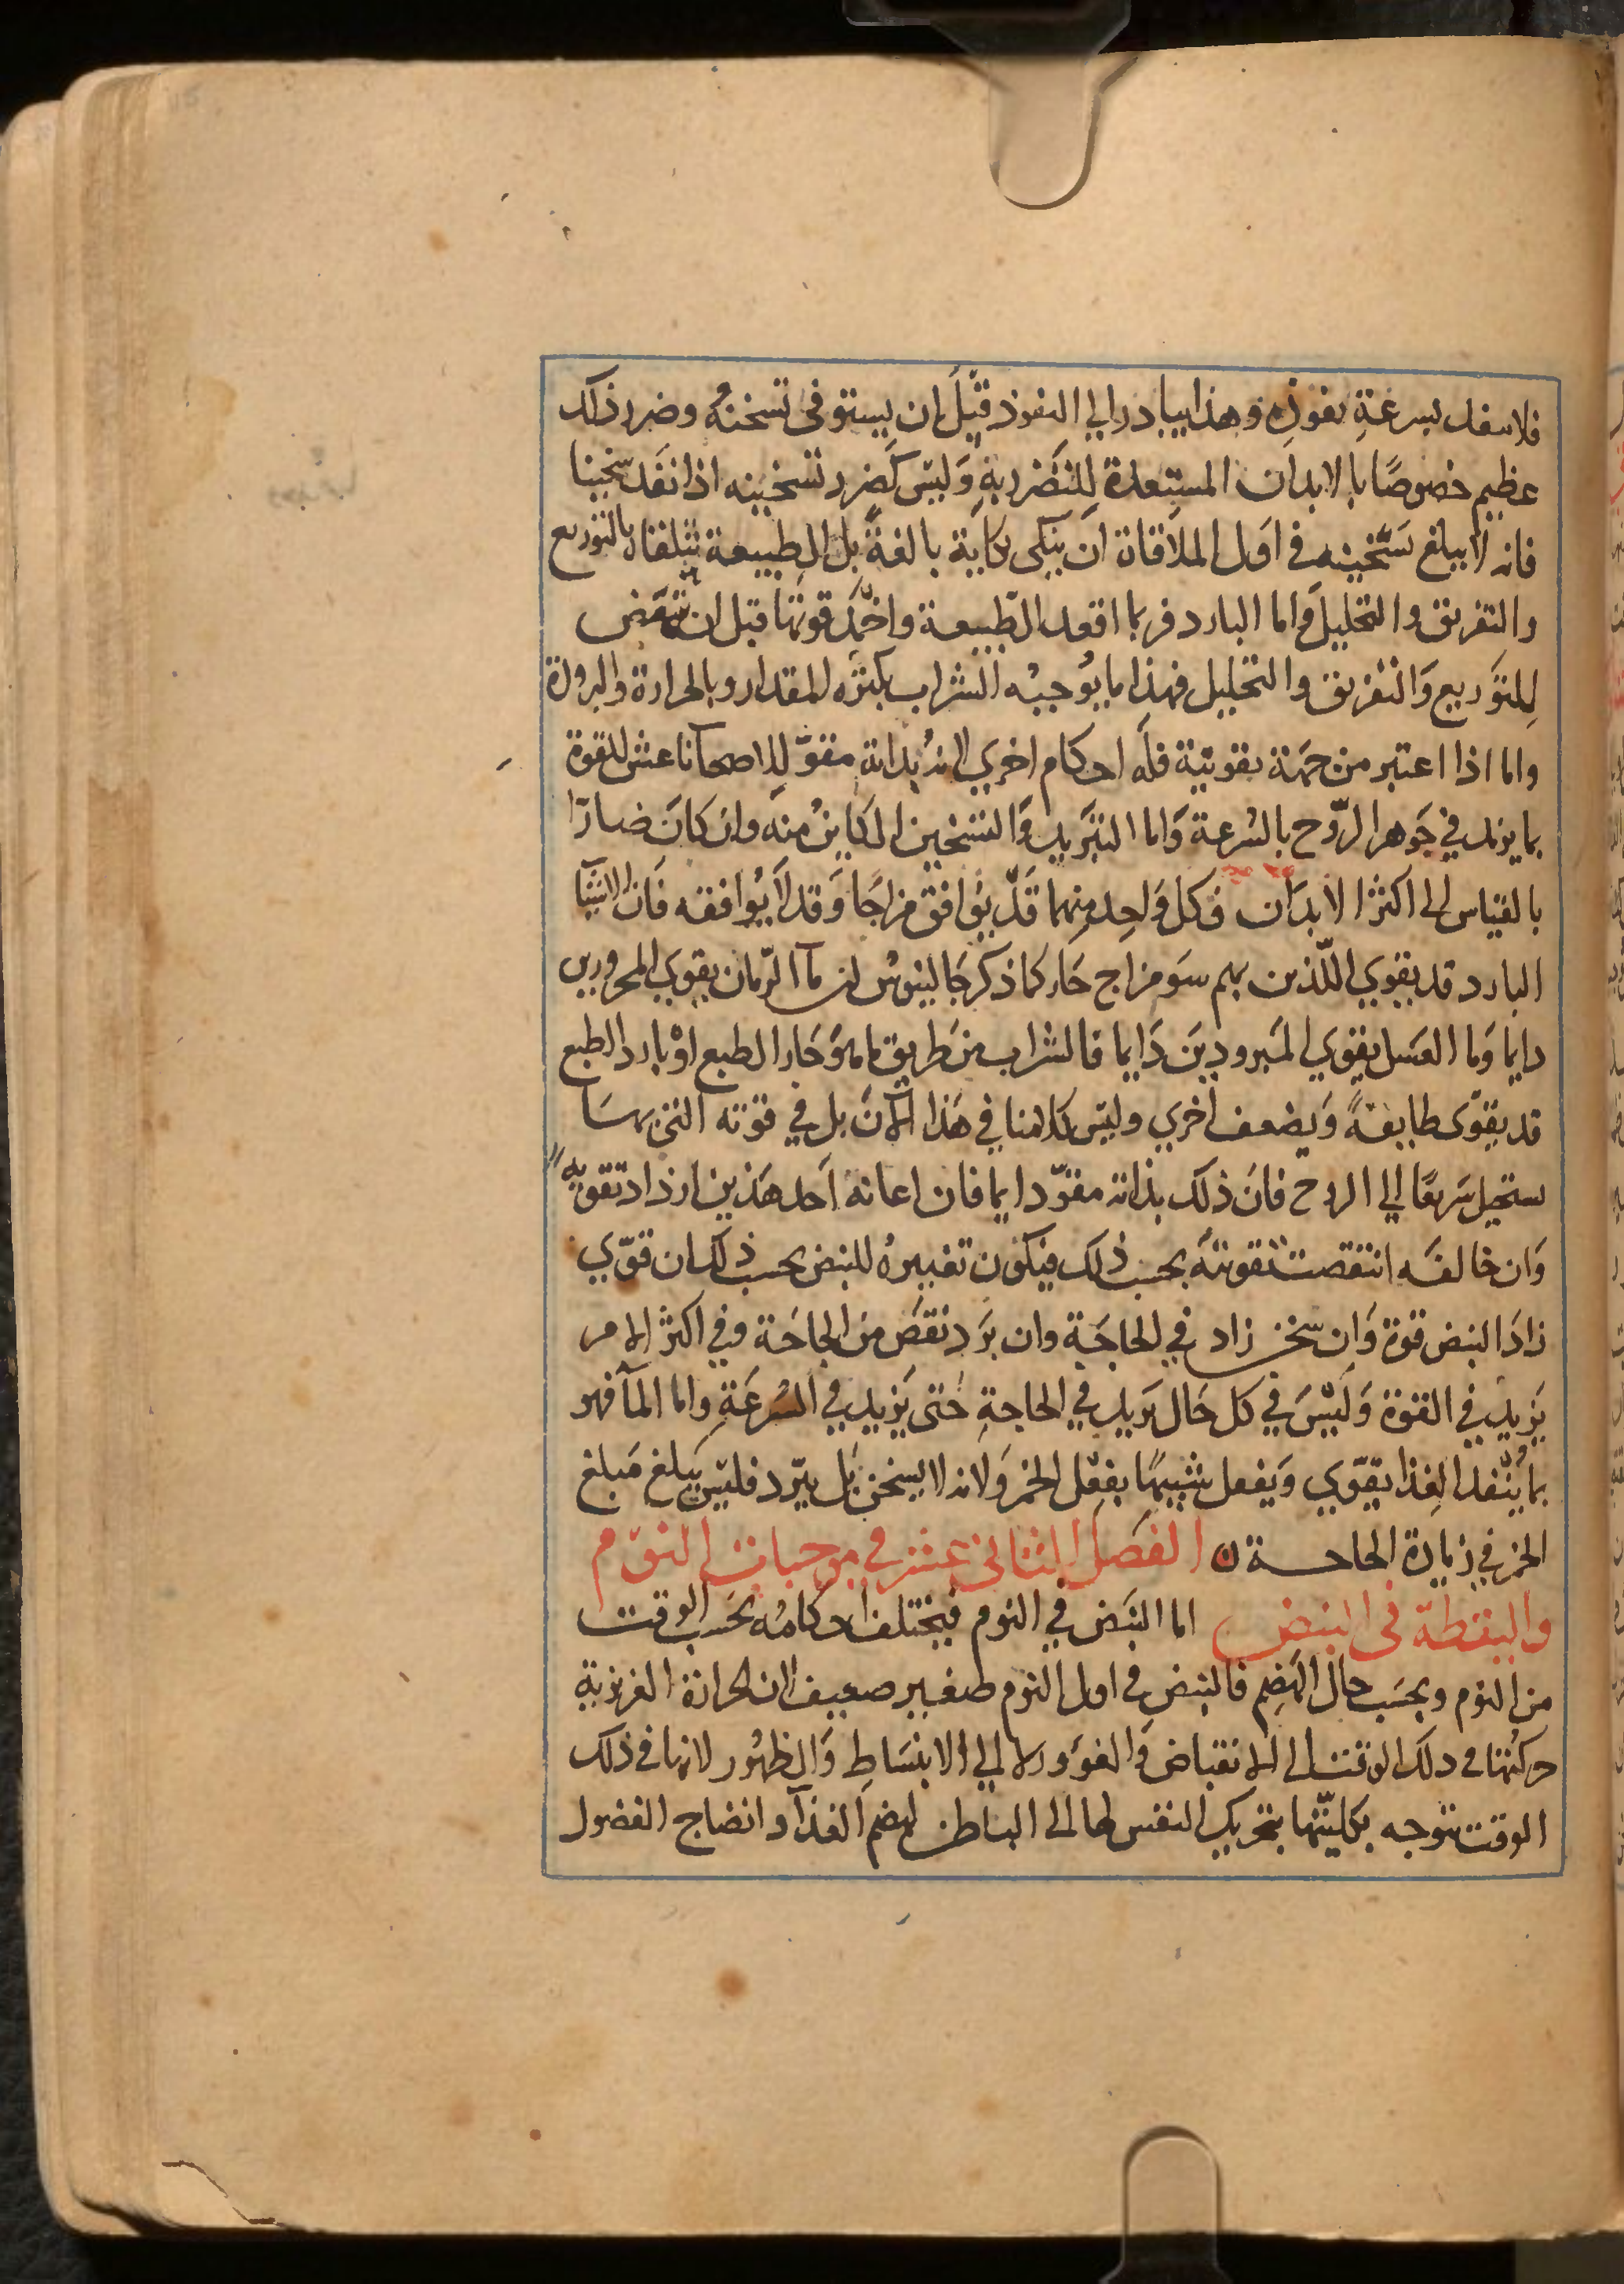 فلاسفل بسرعةِ نفوذِه وهذا يبادر الي النفوذ قبْلَ ان يستوفى تسخنهُ وضرر ذلك
عظيم خصوصًا بالابدان المستعدة للتضرر بهِ وَليسَ كَضرر تسخينه اذا نَفَد سخينا
فانه لا يبلغ تسَّخينه في اوَل الملاقاة ان ينكى نكاية بالغةً بل الطبيعة تتلقاه بالتوزيع
والتفريق والتحليل وَاما البارد فربما اقعد الطّبيعة واخمَد قوتها قبل ان تنهض
لِلتوَزيع وَالتفريق والتحليل فهذا ما يُوجبُه الشراب بكثرة المقدار وبالحرارة والبرودة
واما اذا اعتبر من جهَة تقويتهِ فلَه احكام اخري لانهُ بذاته مقوّ للاصحآ ناعش للقوة
بما يزيد في جَوهر الرّوح بالسُرعة وَاما التبَريد وَالتسَخين الكاينُ منهَ وان كانَ ضارّا
بالقياس الى اكثر الابدَان فكل وَاحِد مِنهما قدّ يوُافق مزاجًا وَقد لاَ يُوافقه فَان الاشيآ
البارد قد يقوي اللّذين بهم سَو مزاج حَار كما ذكر جَالينوسُ ان مآ الرّمان يقوي المحرورين
دايما وَما العَسل يقوي المَبرودِينَ دَايما فالشراب مِن طريق ما هوَ حَار الطبع اوْ بارد الطبع
قد يقوّى طايفةً وَيضعف اخري وليسَ كلامنا في هَذا الآنَ بل في قوّته التي بهَا
يستحيل سَريعًا الي الروح فانَ ذلك بذاته مقوّ دايما فان اعانه اَحد هَذين ازداد تقويةً
وَان خالفَه انتقصت تقويتَهُ بحسب ذلك فيكوُن تغييرهُ للنبض بحسب ذلك ان قوّي
زادَ النبض قوة وَان سخن زاد في الحاجَة وان برَد نقصَ من الحاجَة وفي اكثر الامر
يَزيد في القوة وَليْسَ في كل حَال يَزيد في الحاجةِ حَتى يَزيد في السُرعَةِ واما المآ فهو
بما يُنّفد الغِذا يقوّي وَيفعل شبيهًا بفِعْل الخمر وَلانه لا يسخن بَل يبرّد فليسَ يَبلغ مَبلغ
الخمر في زيادة الحاجة ن الفصل الثانى عشر في موجبات النوم
واليقظة فى النبض اما النبَض في النوم فيختلف احكامُه بحَسَب الوقت
من النوم وبحسَب حال الهَضِم فالنبضِ في اول النوم صغير ضعيف لان الحرارة الغريزية
حركتها في ذلك الوقت الى الانقباض وَالغوَور لا الي الابنسَاطِ وَالظهُور لانها في ذلك
الوقت تتوجه بكليّتها بتحريك النفس لها الى الباطن لهضم الغذآ وانضاج الفضول